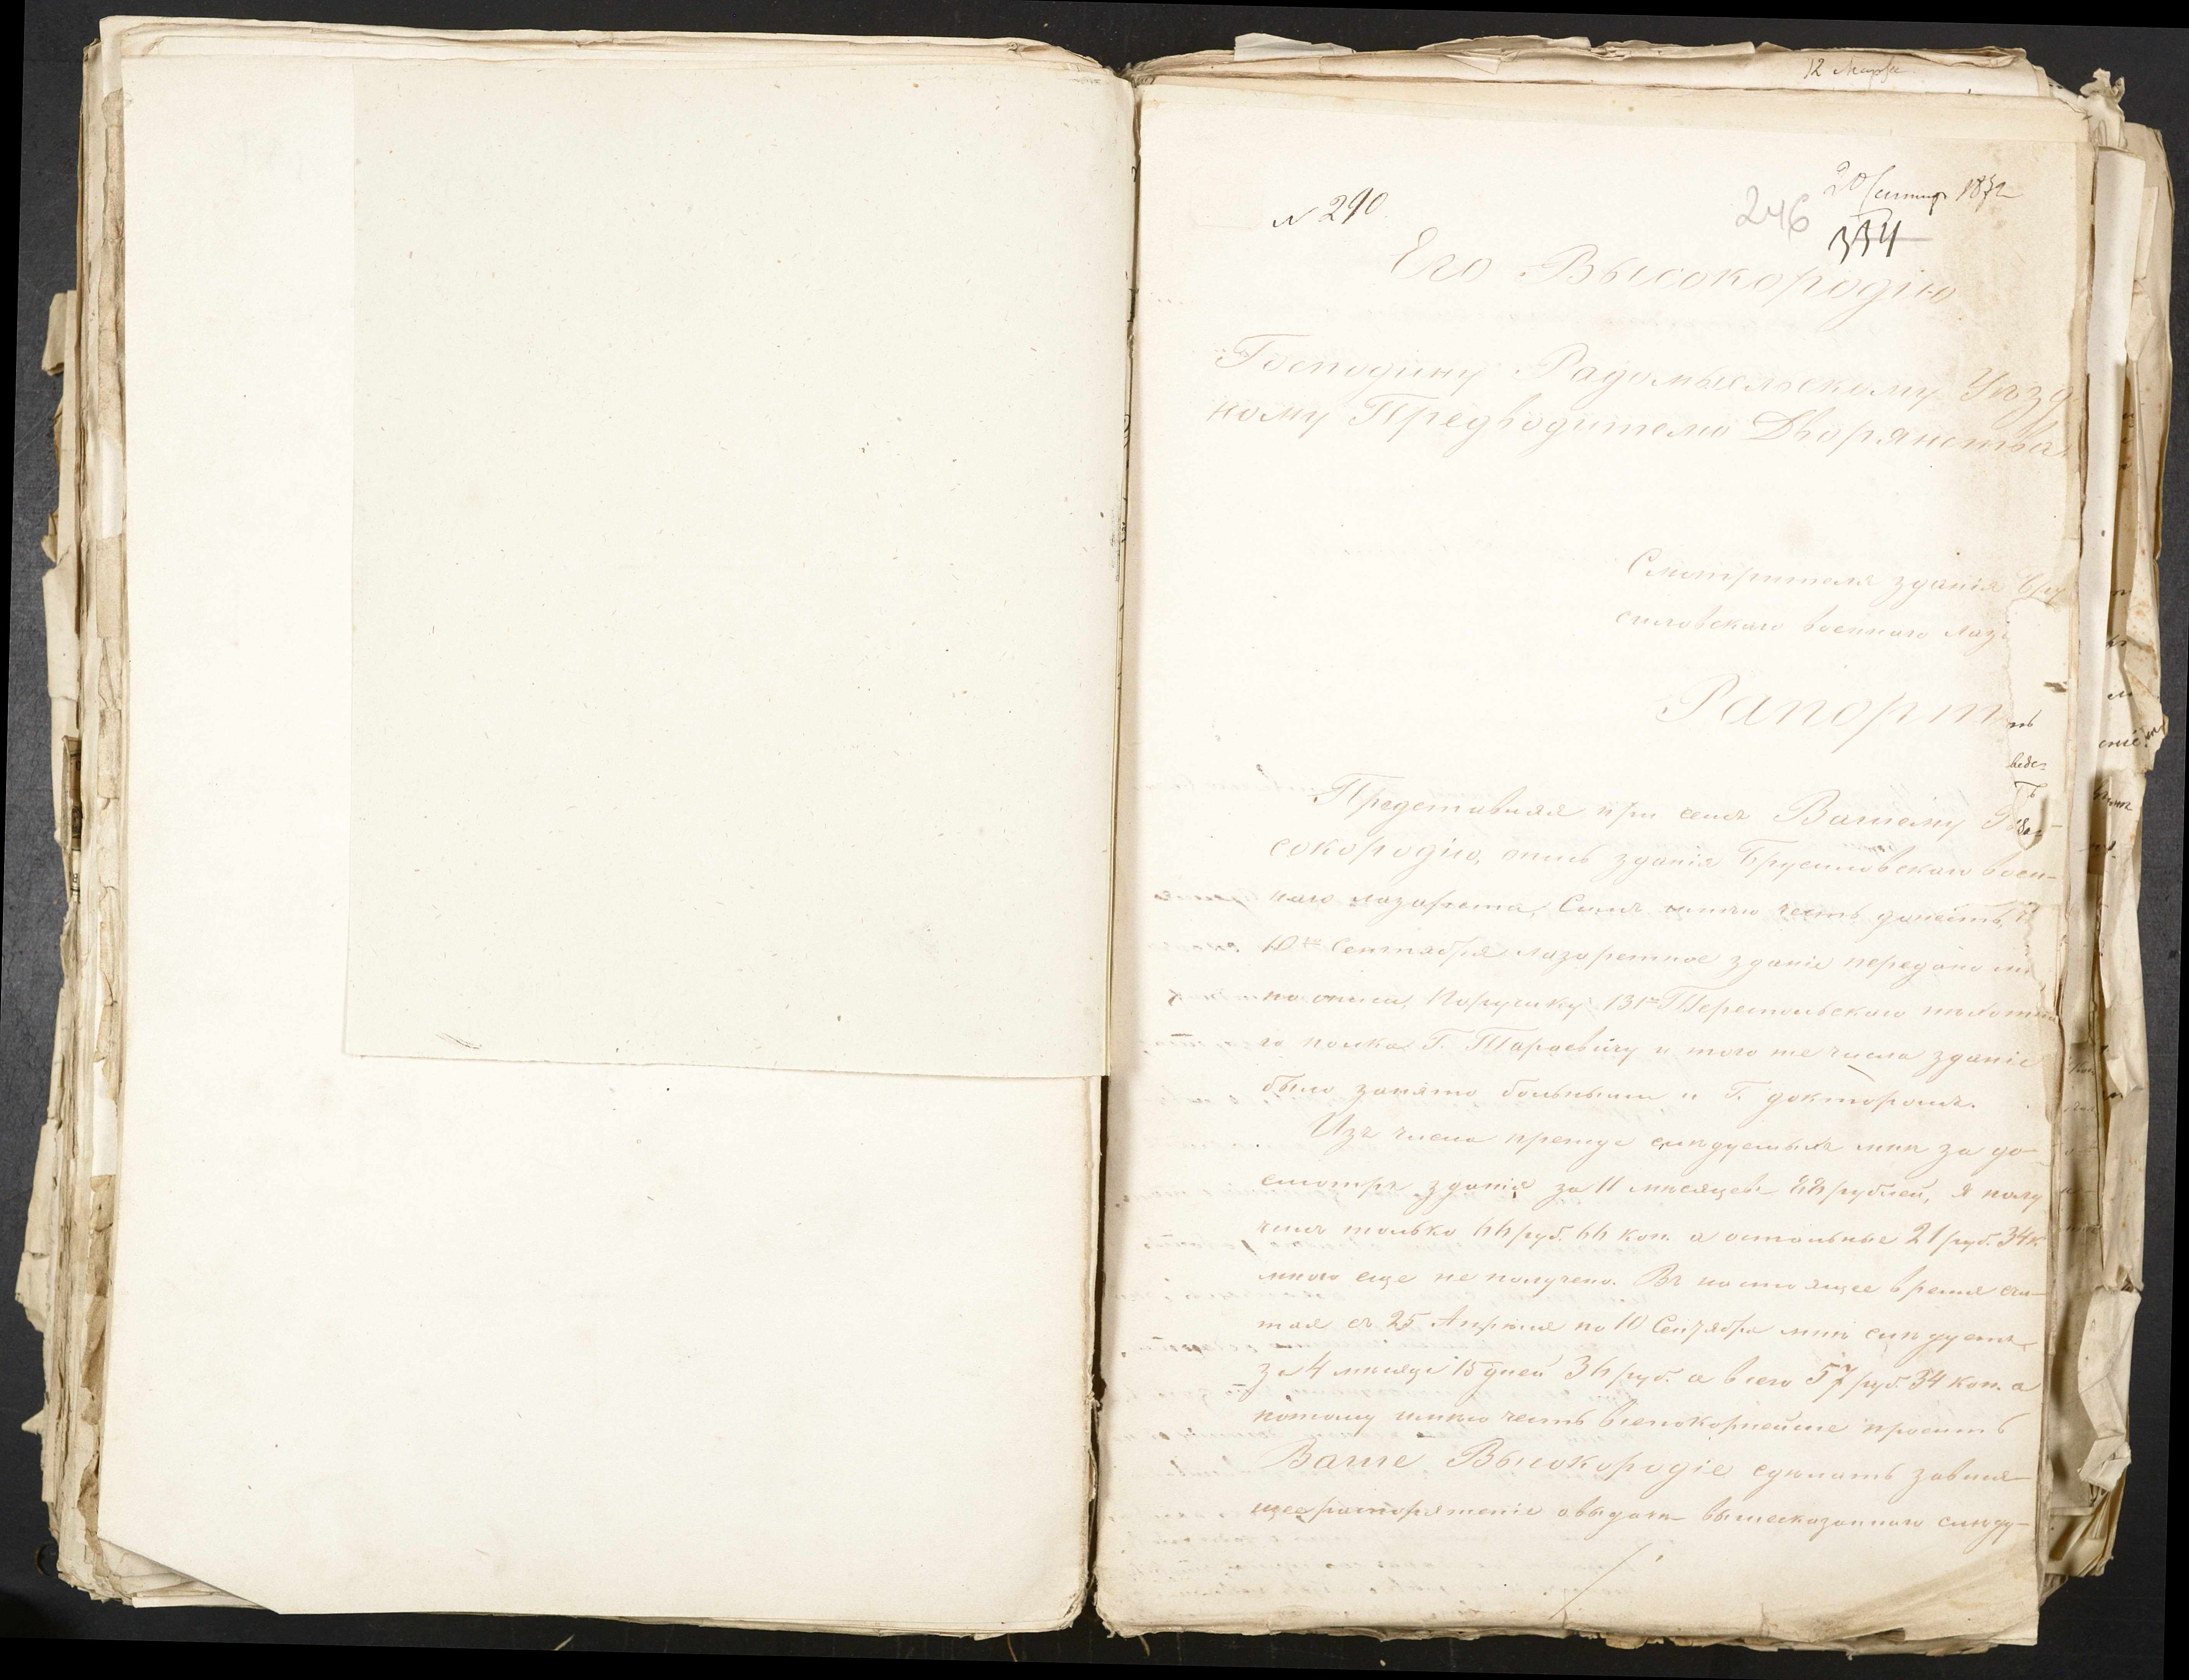 12 Марта
20 Сентяр 1872
№ 290.
246
334
Его Высокородію
Господину Радомысльскому Уѣзд
ному Предводителю Дворянства
Смотрителя зданія Бру
силовскаго военнаго лаза
Рапортъ
Представляя при семъ Вашему Вы
сокородію, опись зданія Брусиловскаго воен-
наго лазарета, Симъ имѣю честь донесть,
10го Сентября лазаретное зданіе передано
по описи, Поручику 131го Тираспольскаго пѣхотна
го полка Г. Тараевичу и того же числа зданіе
было занято больными и Г. докторомъ.
Изъ числа прежде слѣдуемыхъ мнѣ за до-
смотръ зданія за 11 мѣсяцевъ 88 рублей, я полу
чилъ только 66 руб. 66 коп. а остальные 21 руб. 34 к.
мною еще не получено. Въ настоящее время счи-
тая съ 25 Апрѣля по 10 Сентября мнѣ слѣдуетъ
за 4 мѣсяца 15 дней 36 руб. а всего 57 руб. 34 коп. а
потому имѣю честь всепокорнейше просить
Ваше Высокородіе сдѣлать завися-
щее распоряженіе о выдачѣ вышесказаннаго слѣду-